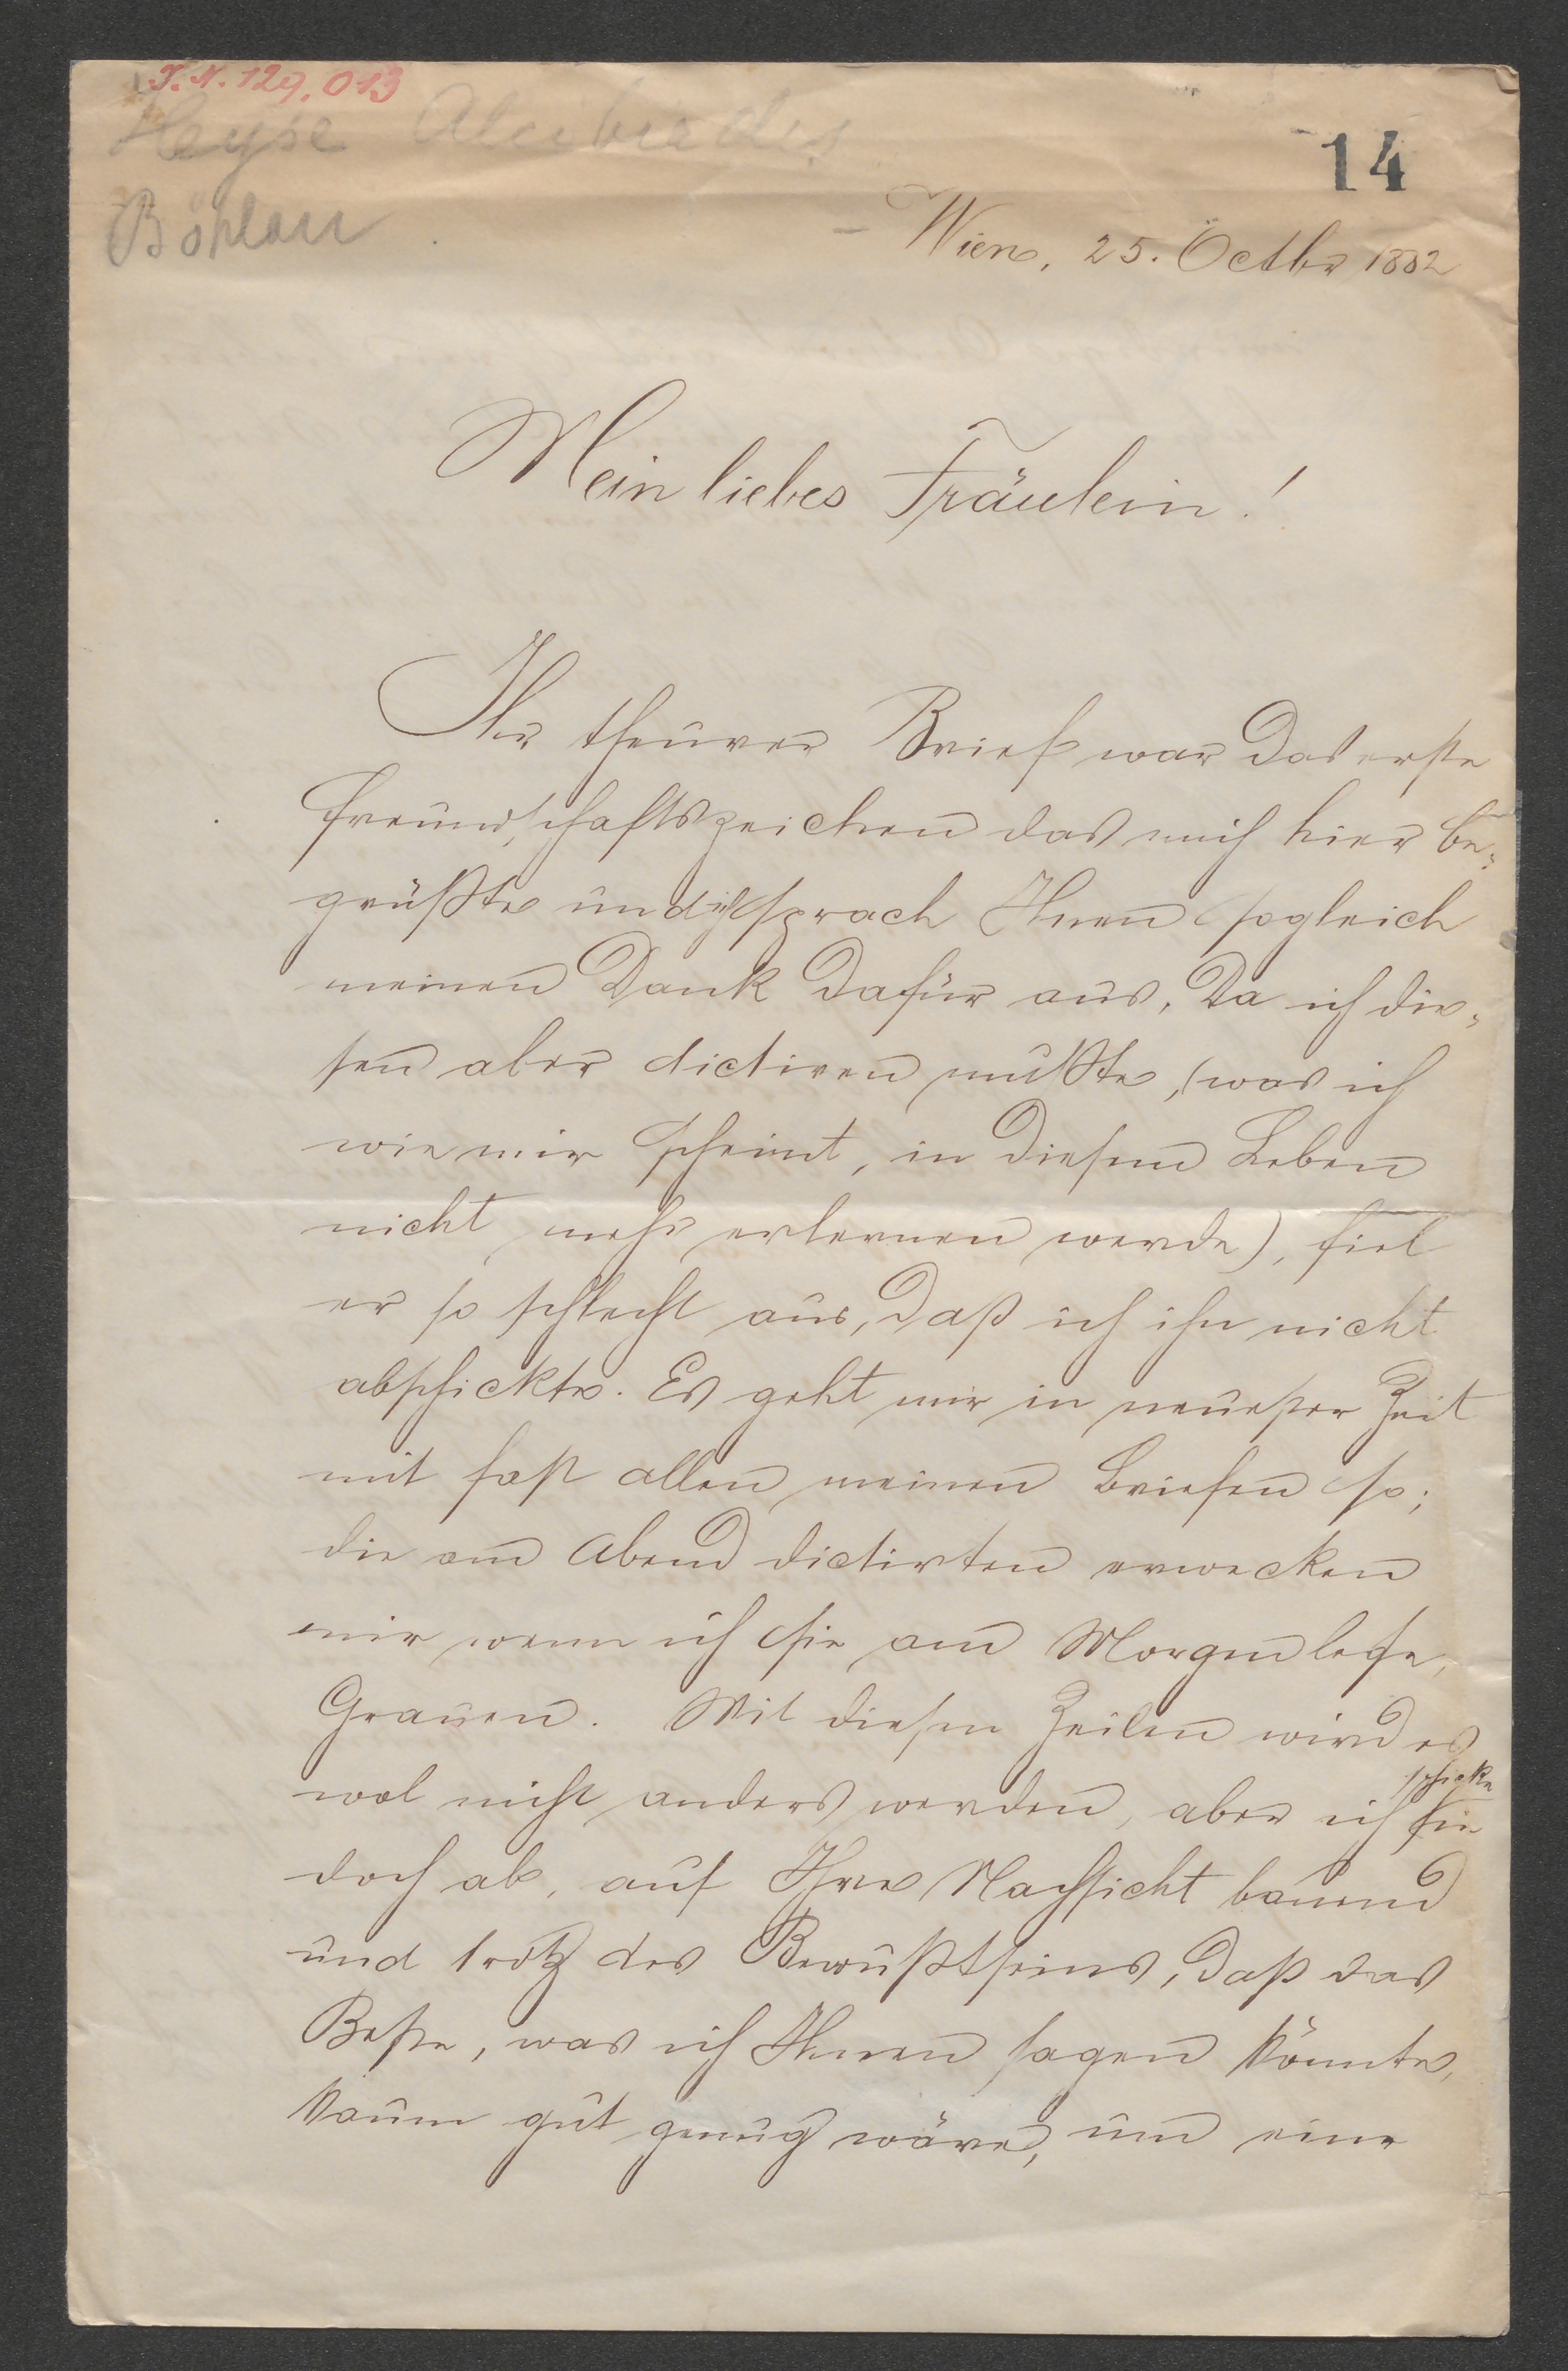 J. N. 129.013
Heyse Alcibiades
14
Böhlau
Wien, 25. Octbr 1882
Mein liebes Fräulein!
Ihr theurer Brief war das erste
Freundschaftszeichen das mich hier be-
grüßte und ich sprach Ihnen sogleich
meinen Dank dafür aus. Da ich die-
sen aber dictiren mußte, (was ich
wie mir scheint, in diesem Leben
nicht mehr erlernen werde), fiel
er so schlecht aus, daß ich ihn nicht
abschickte. Es geht mir in neuester Zeit
mit fast allen meinen Briefen so;
die am Abend dictirten erwecken
mir wenn ich sie am Morgen lese,
Grauen. Mit diesen Zeilen wird es
wol nicht anders werden, aber ich schicke sie
doch ab, auf Ihre Nachsicht bauend
und trotz des Bewußtseins, daß das
Beste, was ich Ihnen sagen könnte,
kaum gut genug wäre, um eine